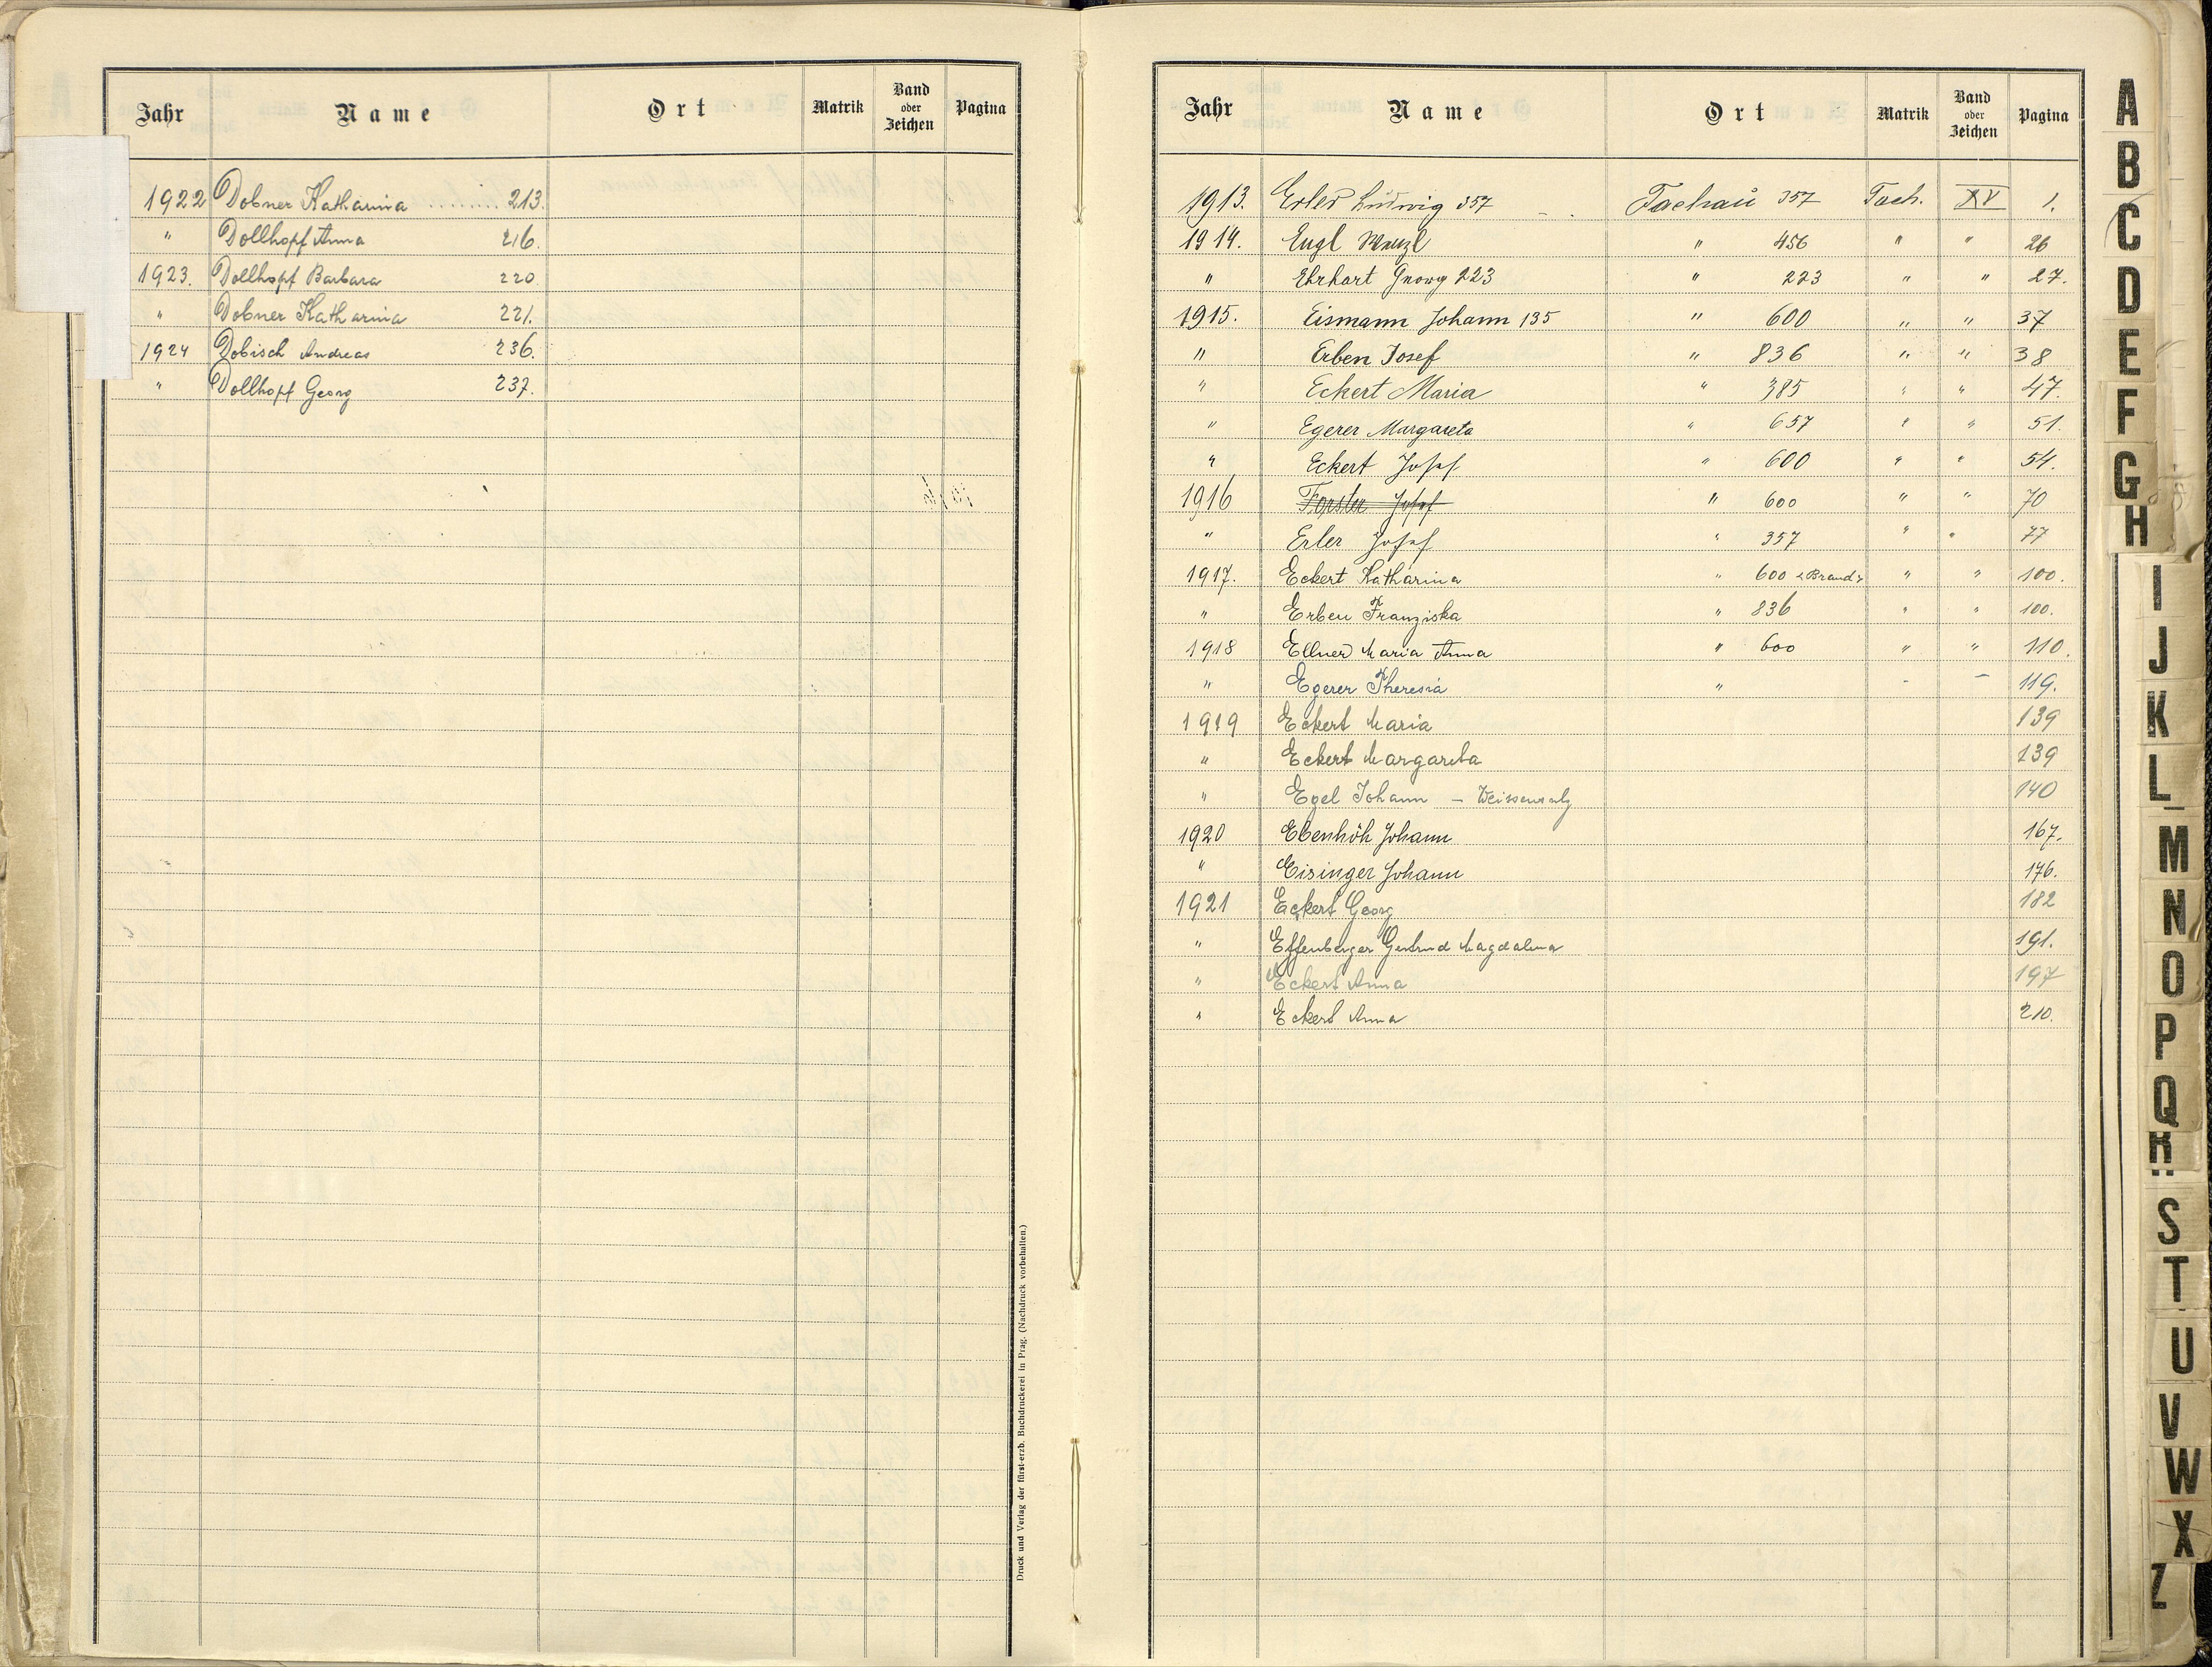 Jahr Name Ort Matrik Band oder Zeichen Pagina
1922 Dobner Katharina ........ 213.
" Dollhopf Anna 216.
1923. Dollhopf Barbara 220
" Dobner Katharina 221.
1924 Dobisch Andreas 236.
" Dollhopf Georg 237.
Druck und Verlag der fürst-erzb. Buchdruckerei in Prag. (Nachdruck vorbehalten.)
Jahr Name Ort Matrik Band oder Zeichen Pagina
1913. Erler Ludwig 357 Tachau 357 Tach. XV 1.
1914. Engl Wenzl " 456 " " 26
" Ehrhart Georg 223 " 223 " " 27.
1915. Eismann Johann 135 " 600 " " 37
" Erben Josef " 836 " " 38
" Eckert Maria " 385 " " 47.
" Egerer Margareta " 657 " " 51.
" Eckert Josef " 600 " " 54.
1916 Forster Josef " 600 " " 70
" Erler Josef " 357 " " 77
1917. Eckert Katharina " 600 Brand " " 100.
" Erben Franziska " 836 " " 100.
1918 Ellner Maria Anna " 600 " " 110.
" Egerer Theresia " - - 119.
1919 Eckert Maria 139
" Eckert Margareta 139
" Egel Johann – 140
1920 Ebenhöh Johann 167.
" Eisinger Johann 176.
1921 Eckert Georg 182
" Effenberger Gertrud Magdalena 191.
" Eckert Anna 197
" Eckert Anna 210.
A
B
C
D
E
F
G
H
I
J
K
L
M
N
O
P
Q
R
S
T
U
V
W
X
Z